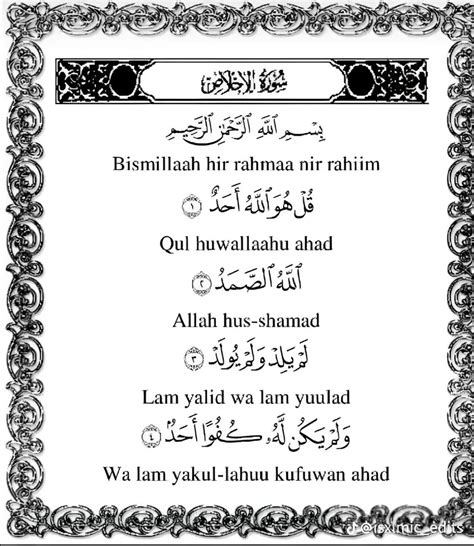 سُورَةُ الإِخْلَاصِ
بِسْمِ اللَّهِ الرَّحْمَٰنِ الرَّحِيمِ
Bismillaah hir rahmaa nir rahiim
قُلْ هُوَ ٱللَّهُ أَحَدٌ ١
Qul huwallaahu ahad
ٱللَّهُ ٱلصَّمَدُ ٢
Allah hus-shamad
لَمْ يَلِدْ وَلَمْ يُولَدْ ٣
Lam yalid wa lam yuulad
وَلَمْ يَكُن لَّهُۥ كُفُوًا أَحَدٌۢ ٤
Wa lam yakul-lahuu kufuwan ahad